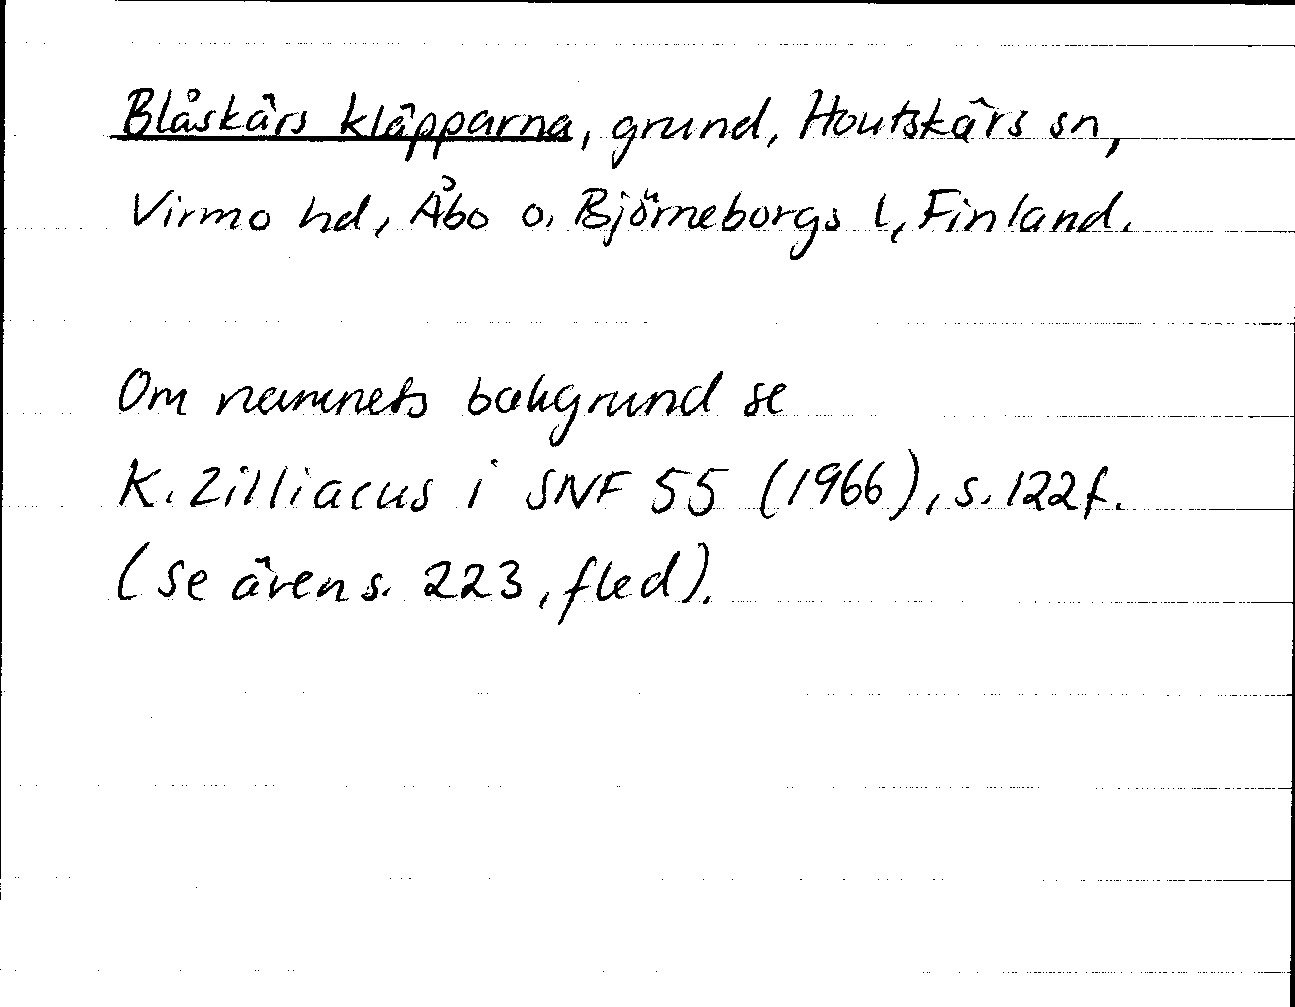 Blåskärs kläpparna, grund, Houtskärs sn,
Virmo hd, Åbo o. Björneborgs l, Finland.
Om namnets bakgrund se
K. Zilliacus i SNF 55 (1966), s. 122 f.
(se även s. 223, fled).